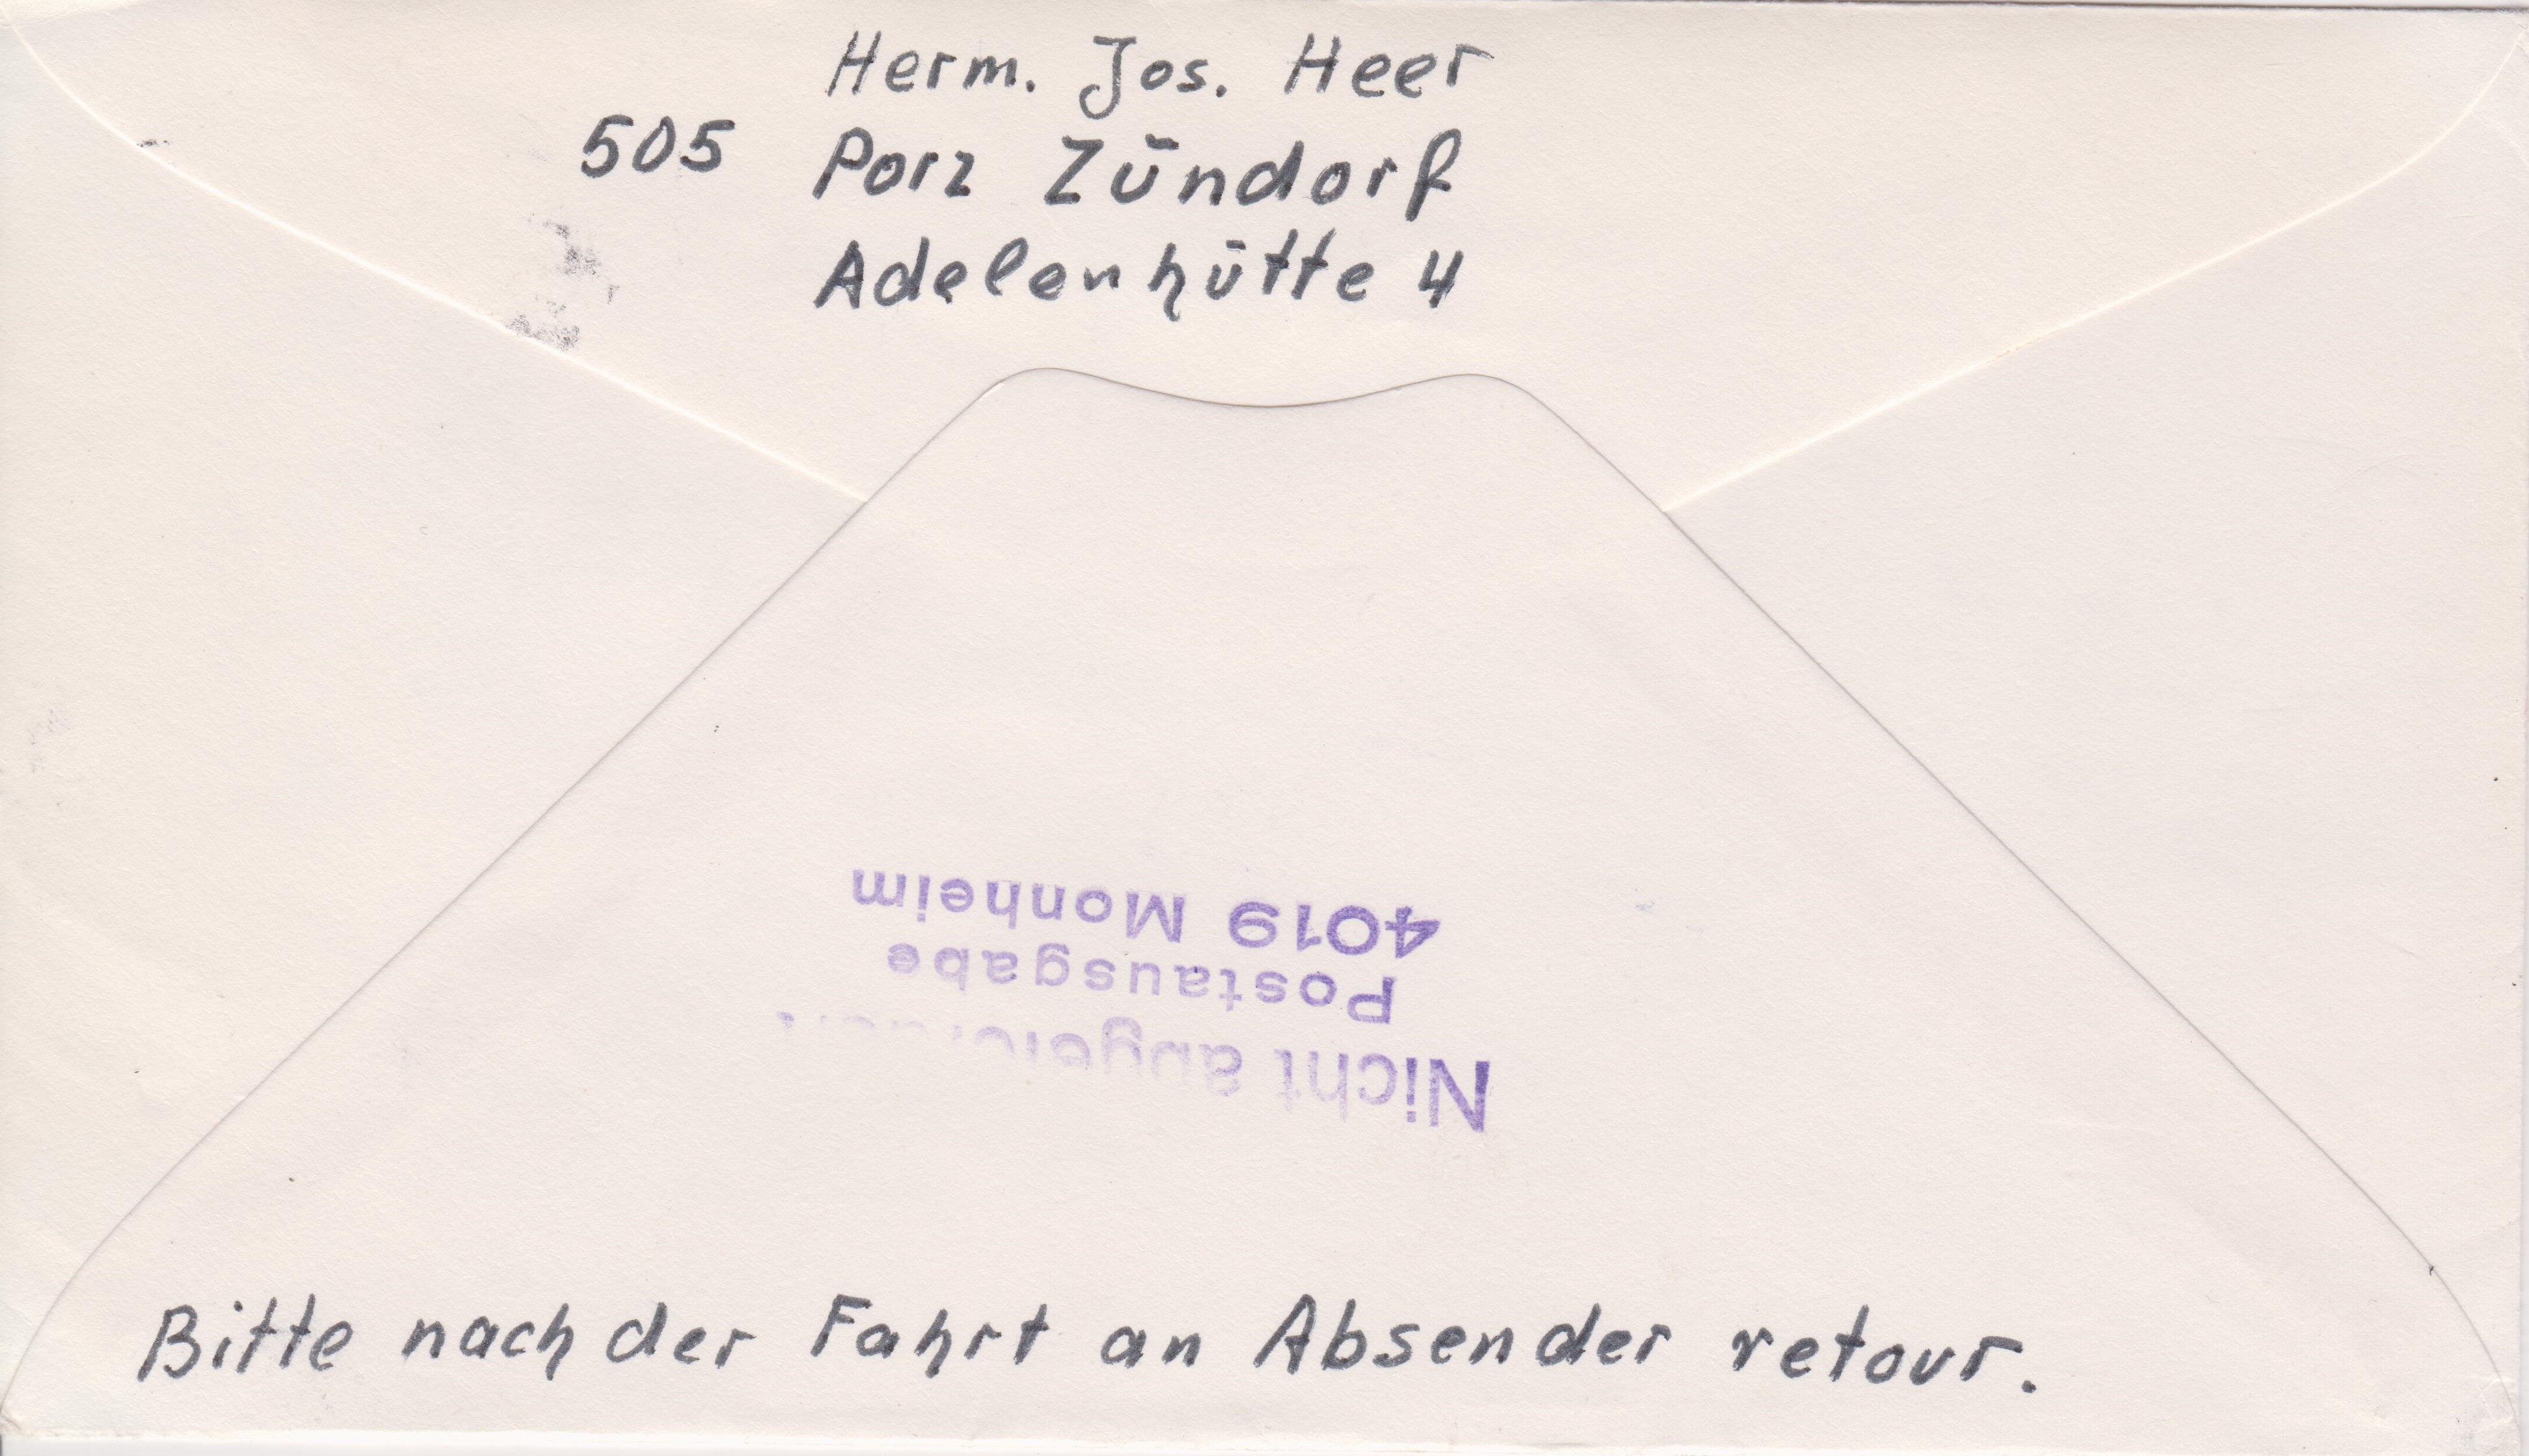 Herm. Jos. Heer
505 Porz Zündorf
Adelenhütte 4
4019 Monheim
Postausgabe
Nicht
Bitte nach der Fahrt an Absender retour.